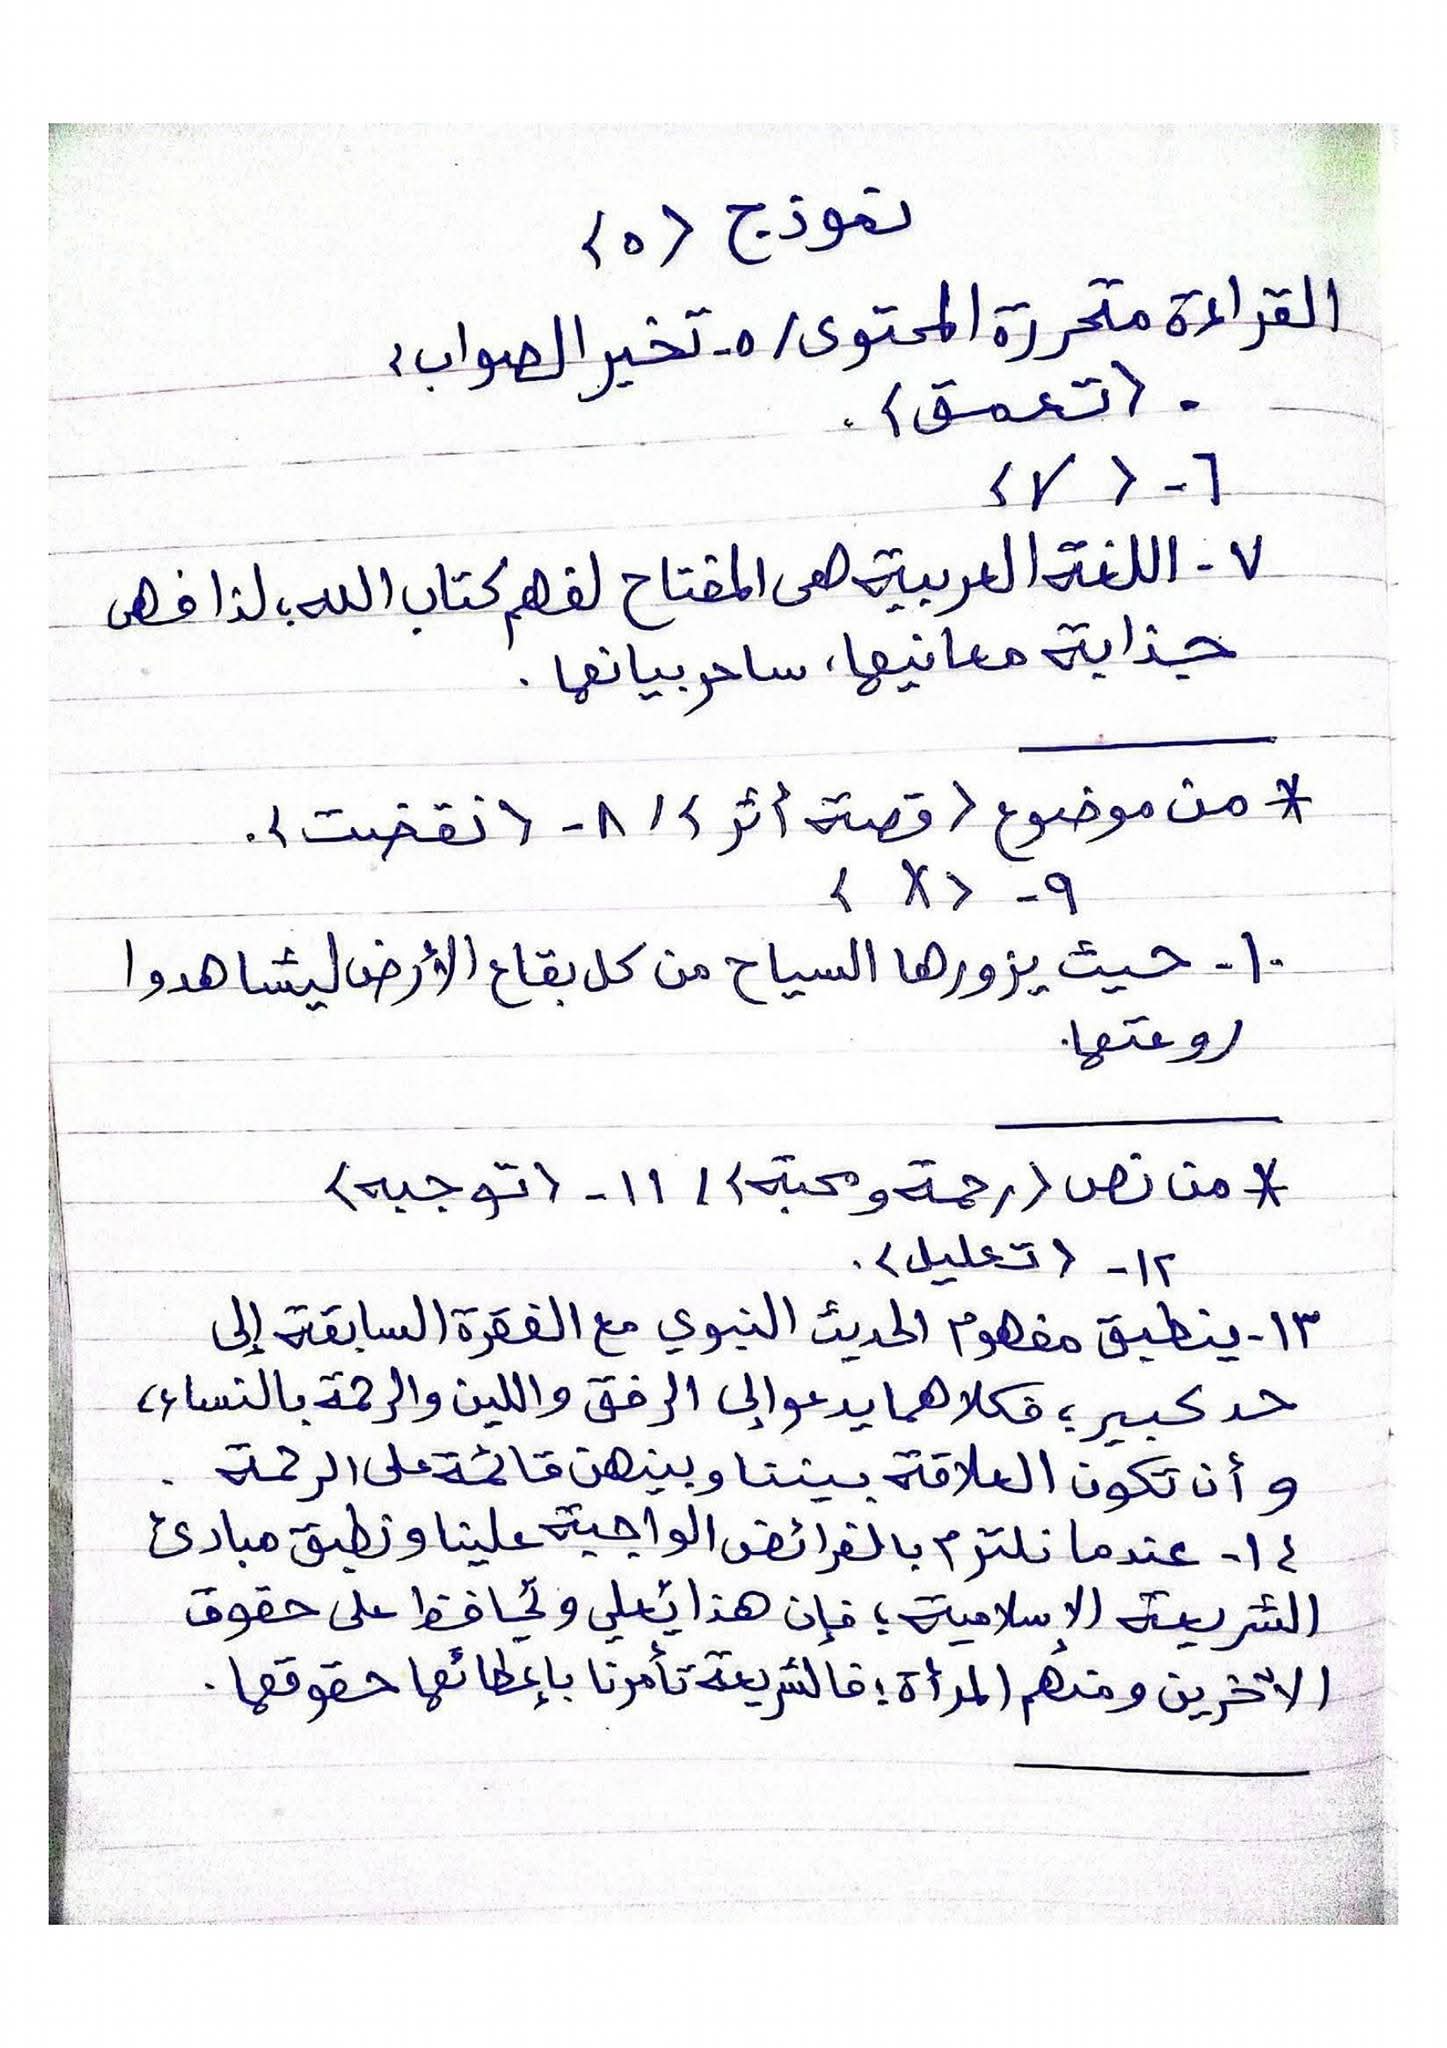 نموذج (٥)
القراءة متحررة المحتوى / ٥- تخير الصواب:
- (تعمق).
٦- (√)
٧- اللغة العربية هى المفتاح لفهم كتاب الله؛ لذا فهى
جذابة معانيها، ساحر بيانها.
* من موضوع (قصة أثر) / ٨- (نقضت).
٩- (X)
١٠- حيث يزورها السياح من كل بقاع الأرض ليشاهدوا
روعتها.
* من نص (رحمة ومحبة) / ١١- (توجيه)
١٢- (تعليل).
١٣- ينطبق مفهوم الحديث النبوي مع الفقرة السابقة إلى
حد كبير؛ فكلاهما يدعو إلى الرفق واللين والرحمة بالنساء،
وأن تكون العلاقة بيننا وبينهن قائمة على الرحمة.
١٤- عندما نلتزم بالفرائض الواجبة علينا ونطبق مبادئ
الشريعة الإسلامية؛ فإن هذا يعلي ويحافظ على حقوق
الآخرين ومنهم المرأة؛ فالشريعة تأمرنا بإعطائها حقوقها.